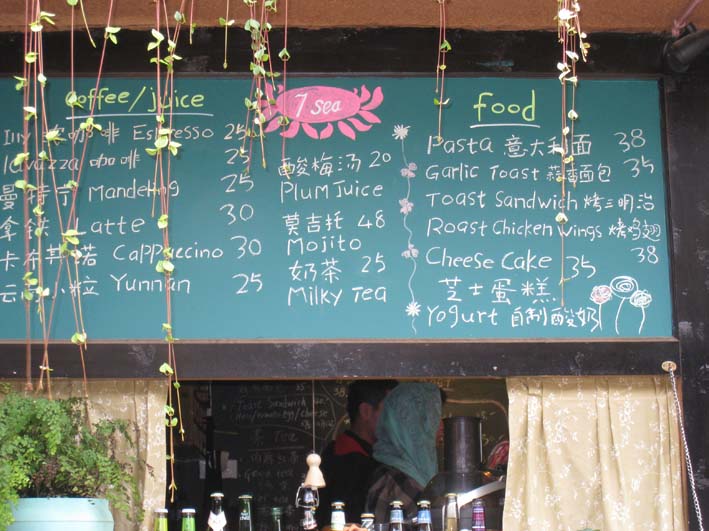 coffee/juice
Illy 咖啡 Espresso 25
lavazza 咖啡 25
曼特宁 Mandeling 25
拿铁 Latte 30
卡布其诺 Cappuccino 30
云南小粒 Yunnan 25
7 sea
酸梅汤 20
Plum Juice
莫吉托 48
Mojito
奶茶 25
Milky Tea
food
Pasta 意大利面 38
Garlic Toast 面包 35
Toast Sandwich 烤三明治
Roast Chicken wings 烤鸡翅
Cheese Cake 35 38
芝士蛋糕
Yogurt 自制酸奶
Toast Sandwich
Tea